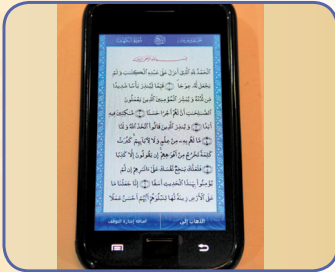 الْحَمْدُ لِلَّهِ الَّذِي أَنزَلَ عَلَىٰ عَبْدِهِ الْكِتَابَ وَلَمْ
يَجْعَل لَّهُ عِوَجًا ۝ قَيِّمًا لِّيُنذِرَ بَأْسًا شَدِيدًا
مِّن لَّدُنْهُ وَيُبَشِّرَ الْمُؤْمِنِينَ الَّذِينَ يَعْمَلُونَ
الصَّالِحَاتِ أَنَّ لَهُمْ أَجْرًا حَسَنًا ۝ مَّاكِثِينَ فِيهِ
أَبَدًا ۝ وَيُنذِرَ الَّذِينَ قَالُوا اتَّخَذَ اللَّهُ وَلَدًا
۝ مَّا لَهُم بِهِ مِنْ عِلْمٍ وَلَا لِآبَائِهِمْ كَبُرَتْ
كَلِمَةً تَخْرُجُ مِنْ أَفْوَاهِهِمْ إِن يَقُولُونَ إِلَّا كَذِبًا
۝ فَلَعَلَّكَ بَاخِعٌ نَّفْسَكَ عَلَىٰ آثَارِهِمْ إِن لَّمْ
يُؤْمِنُوا بِهَٰذَا الْحَدِيثِ أَسَفًا ۝ إِنَّا جَعَلْنَا مَا
عَلَى الْأَرْضِ زِينَةً لَّهَا لِنَبْلُوَهُمْ أَيُّهُمْ أَحْسَنُ عَمَلًا
الذهاب إلى
اضافة إشارة التوقف